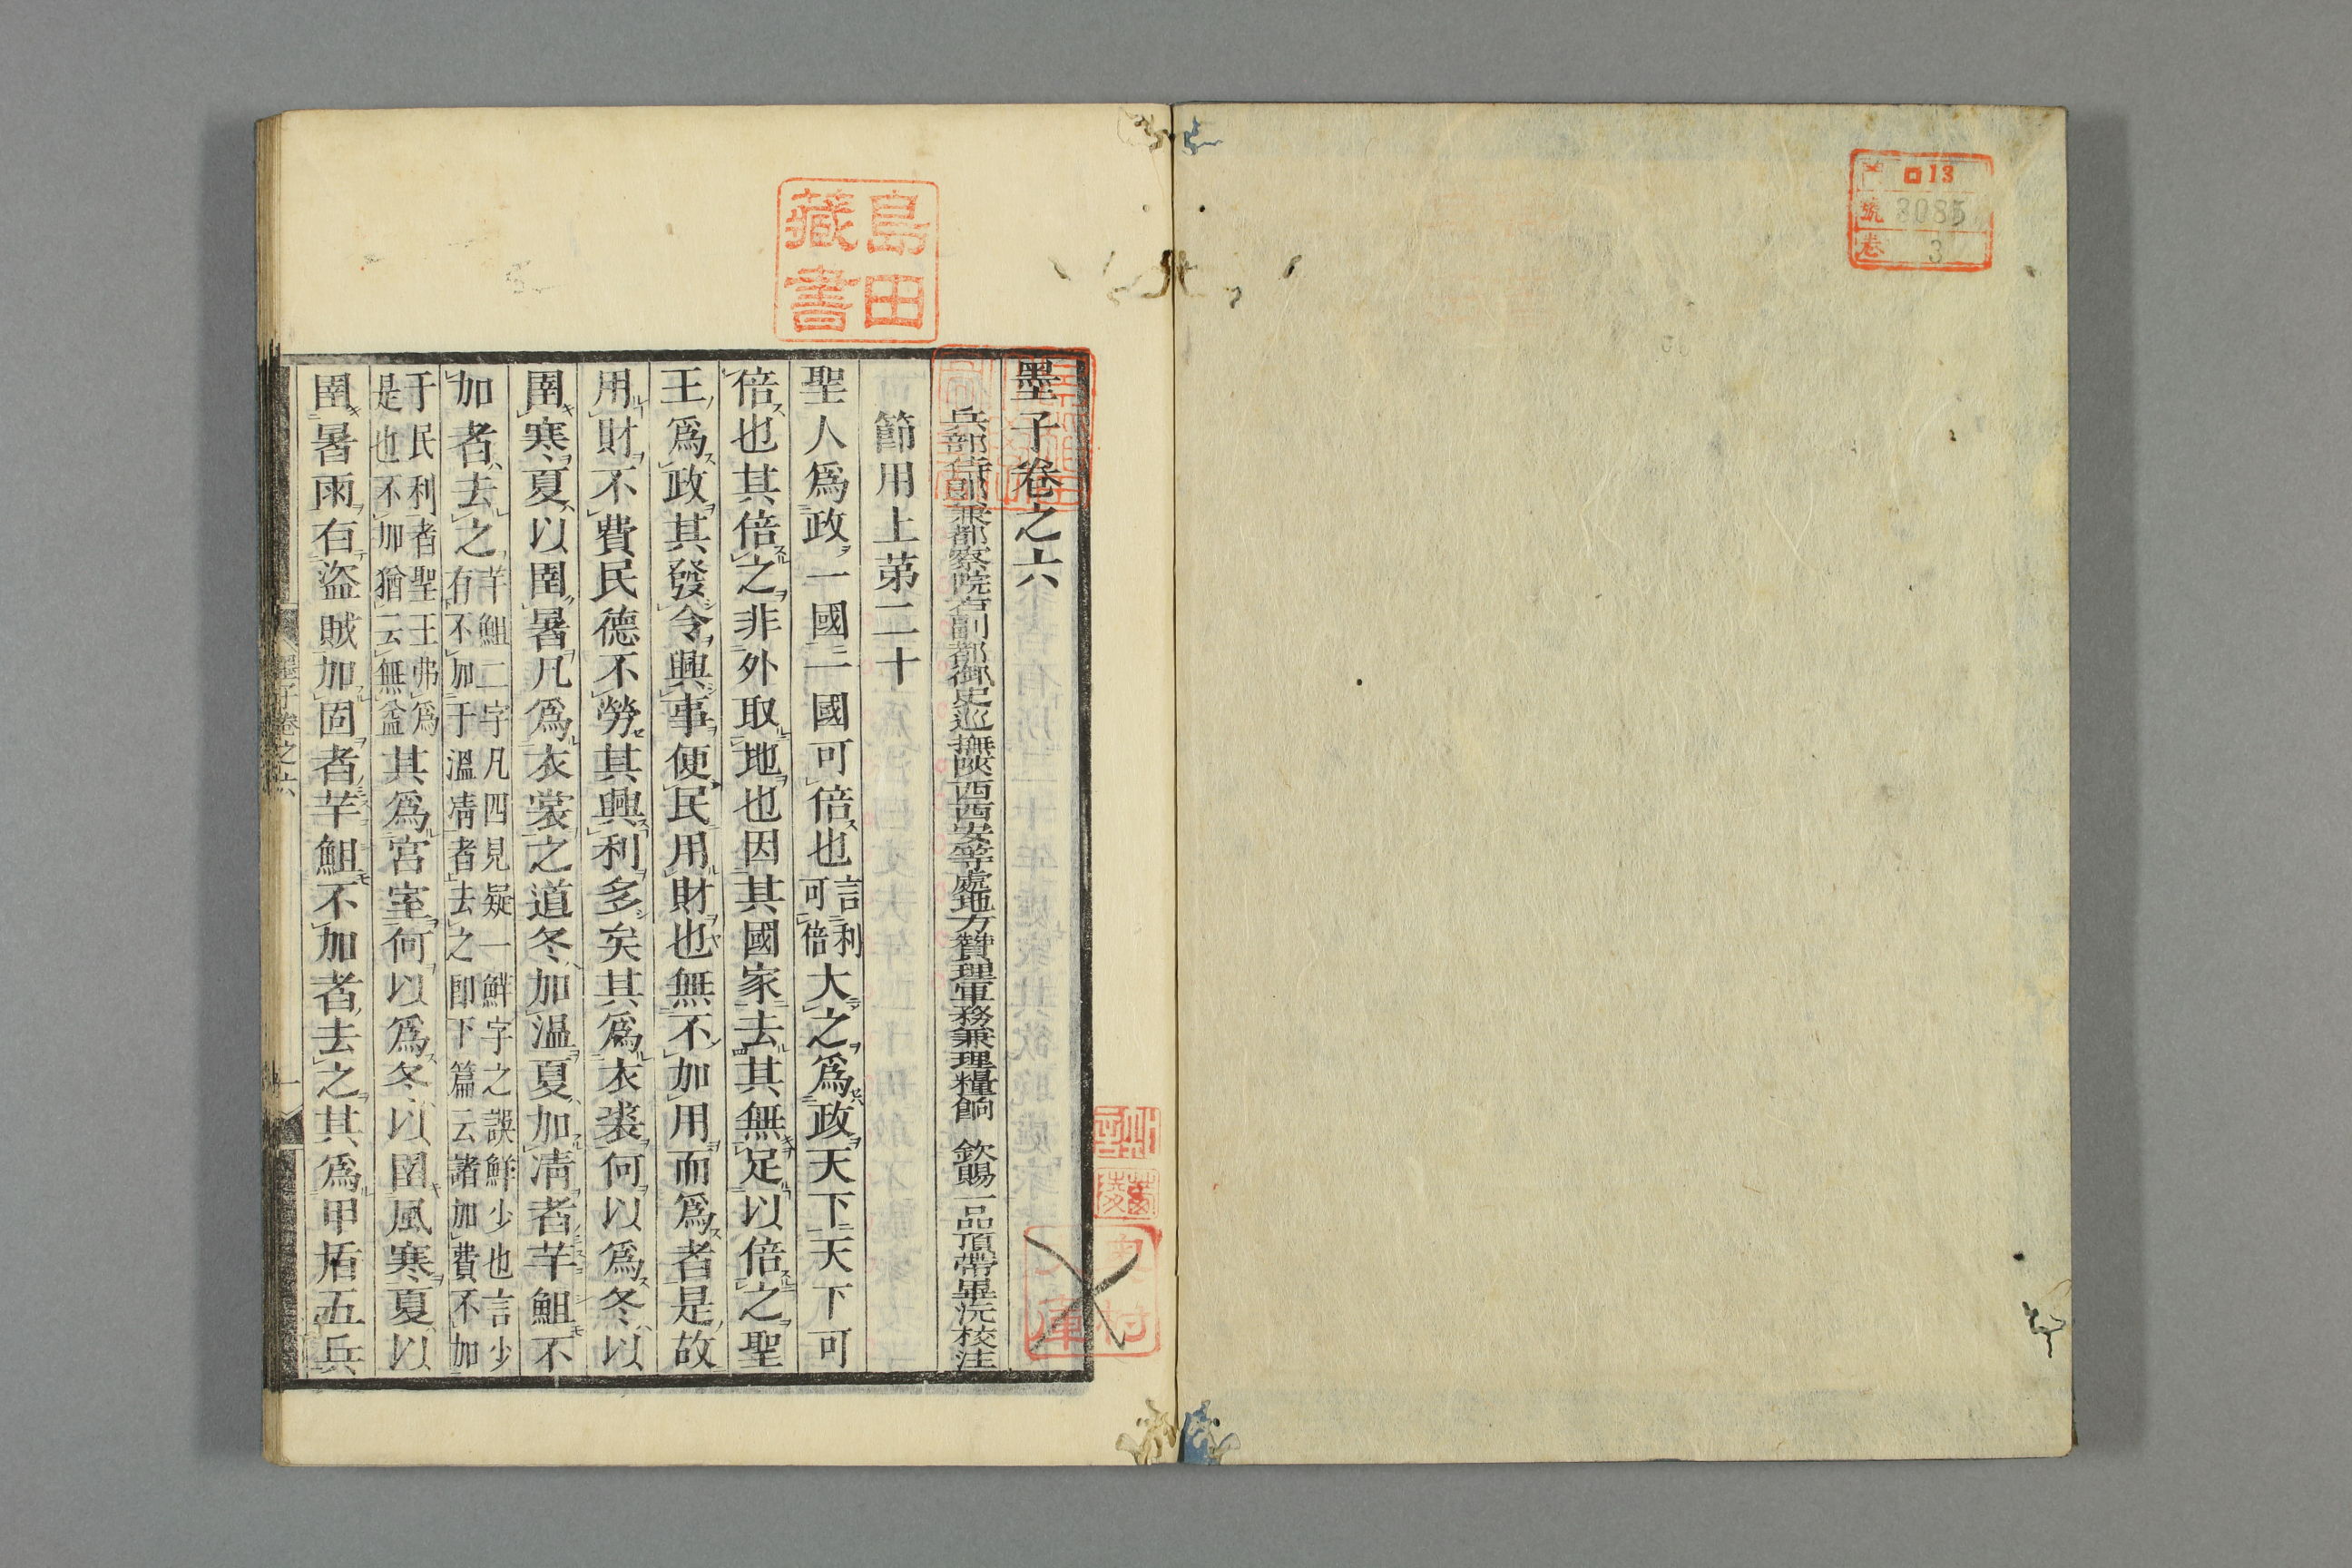 門 ロ13
號 8085
卷 3
島田
藏書
墨子卷之六
兵部侍郎兼都察院右副都御史巡撫陝西西安等處地方贊理軍務兼理糧餉 欽賜一品頂帶畢沅校注
節用上苐二十
聖人爲政一國一國可倍也言利可倍大之爲政天下天下可
倍也其倍之非外取地也因其國家去其無足以倍之聖
王爲政其發令興事便民用財也無不加用而爲者是故
用財不費民德不勞其興利多矣其爲衣裘何以爲冬以
圉寒夏以圉暑凡爲衣裳之道冬加温夏加凊者芊䱉不
加者去之芊䱉二字凡四見疑一鮮字之誤鮮少也言少有不加于溫凊者去之卽下篇云諸加費不加
于民利者聖王弗爲是也不加猶云無益其爲宮室何以爲冬以圉風寒夏以
圉暑雨有盜賊加固者芊䱉不加者去之其爲甲盾五兵
墨子卷之六
一